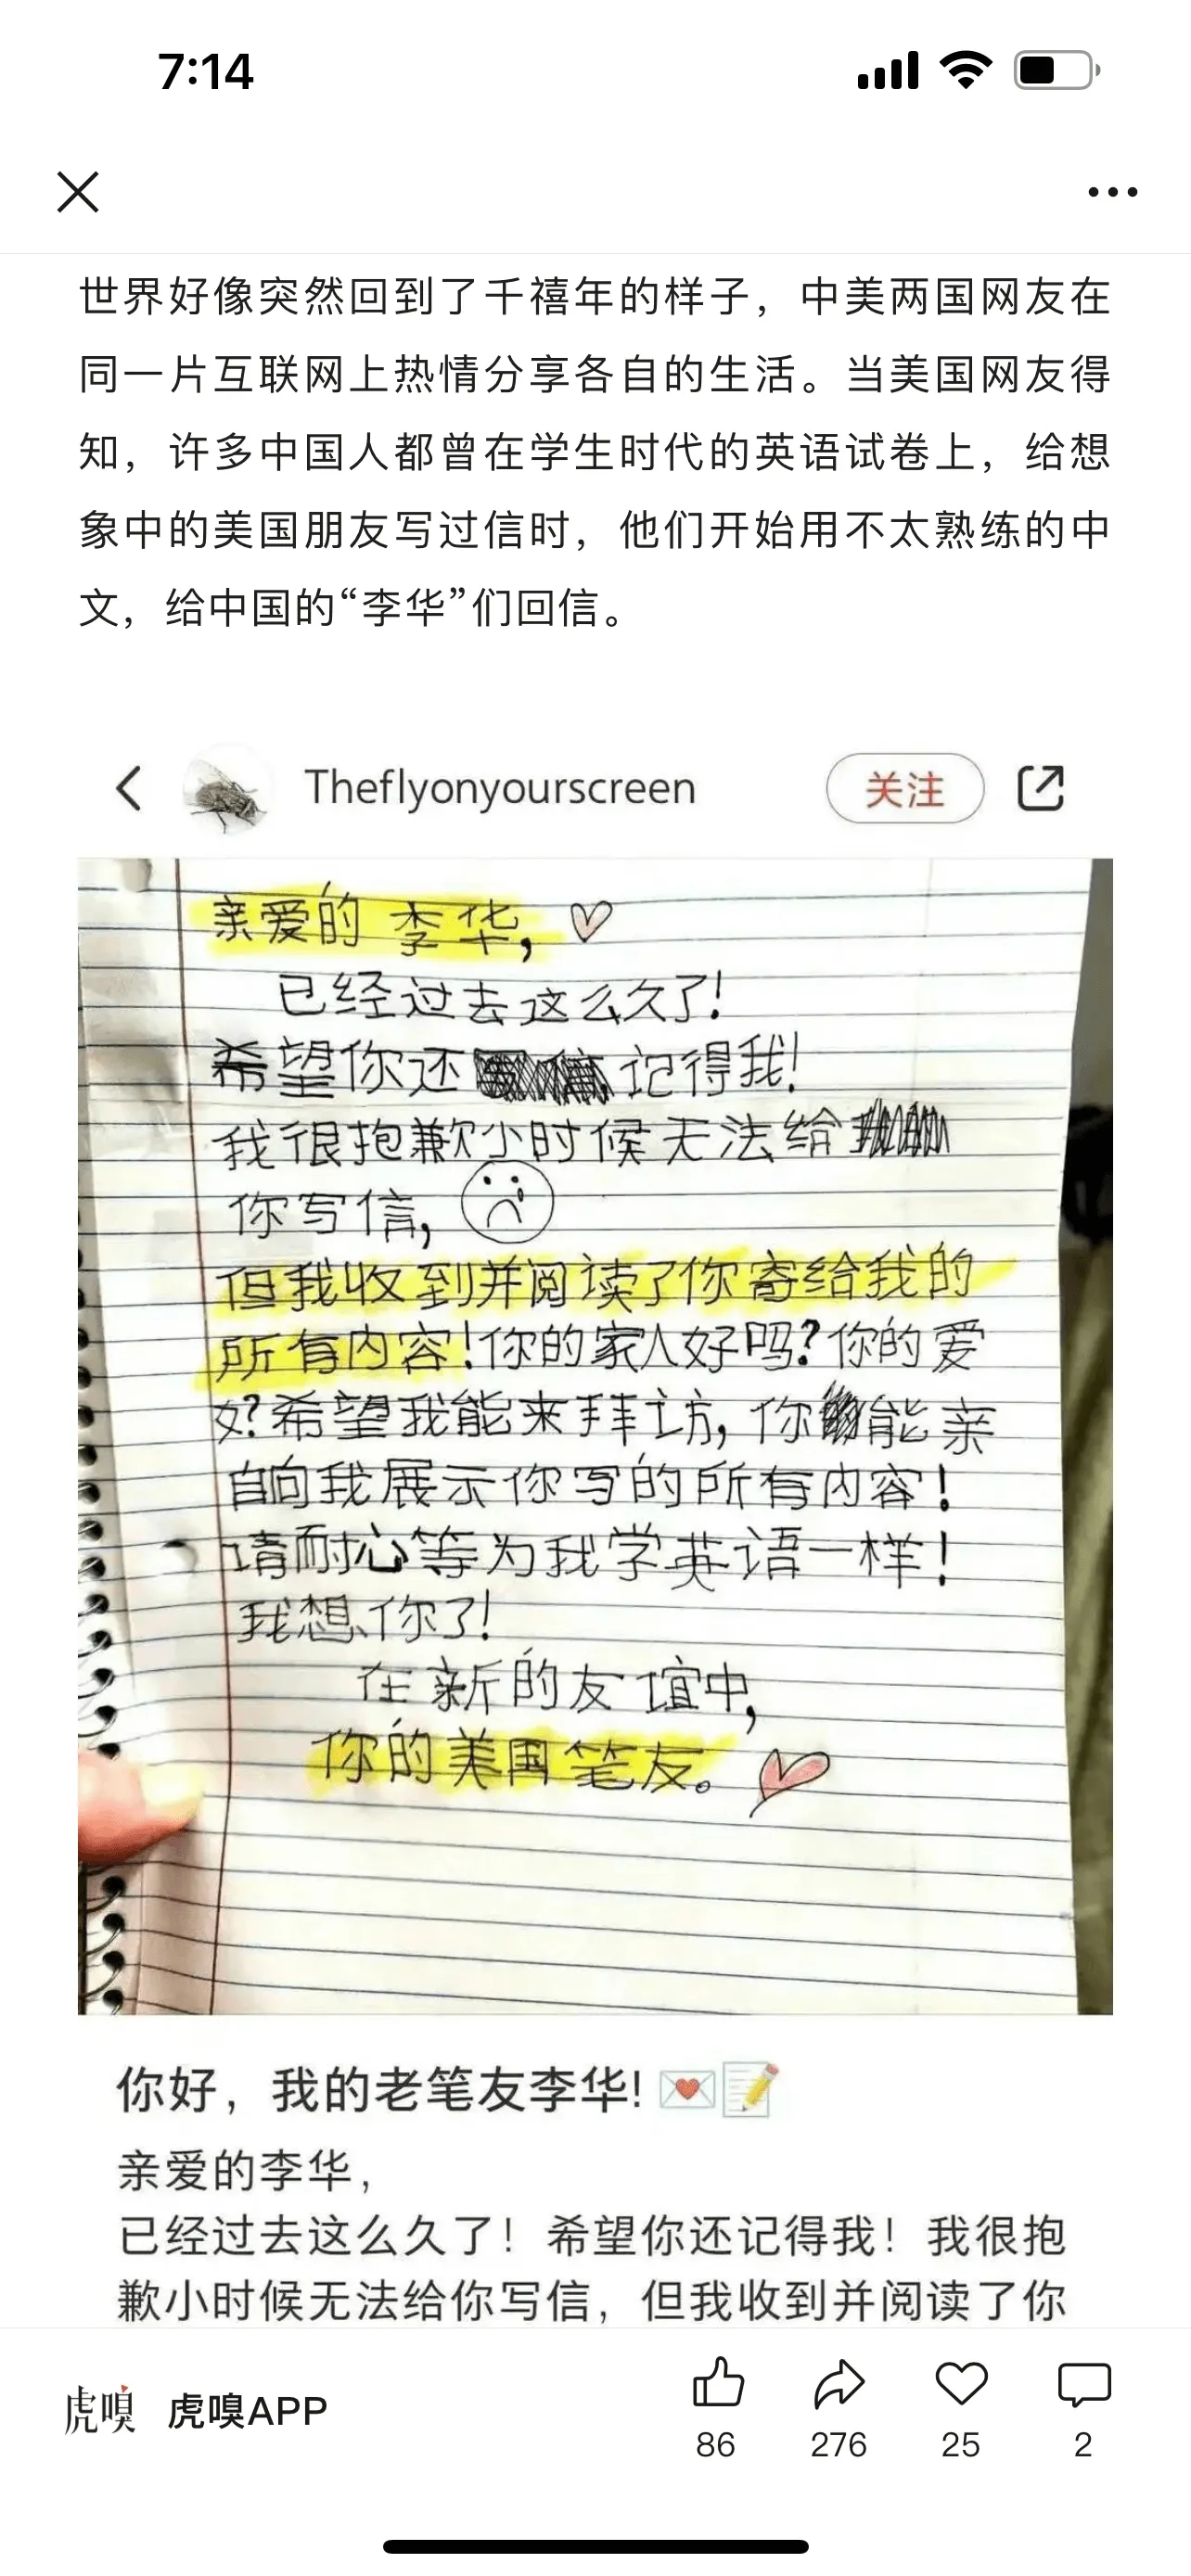 7:14
世界好像突然回到了千禧年的样子，中美两国网友在
同一片互联网上热情分享各自的生活。当美国网友得
知，许多中国人都曾在学生时代的英语试卷上，给想
象中的美国朋友写过信时，他们开始用不太熟练的中
文，给中国的“李华”们回信。
Theflyonyourscreen 关注
亲爱的 李华，
已经过去这么久了！
希望你还记得我！
我很抱歉小时候无法给
你写信，
但我收到并阅读了你寄给我的
所有内容！你的家人好吗？你的爱
好？希望我能来拜访，你能亲
自向我展示你写的所有内容！
请耐心等为我学英语一样！
我想你了！
在新的友谊中，
你的美国笔友。
你好，我的老笔友李华!
亲爱的李华，
已经过去这么久了！希望你还记得我！我很抱
歉小时候无法给你写信，但我收到并阅读了你
虎嗅 虎嗅APP
86 276 25 2